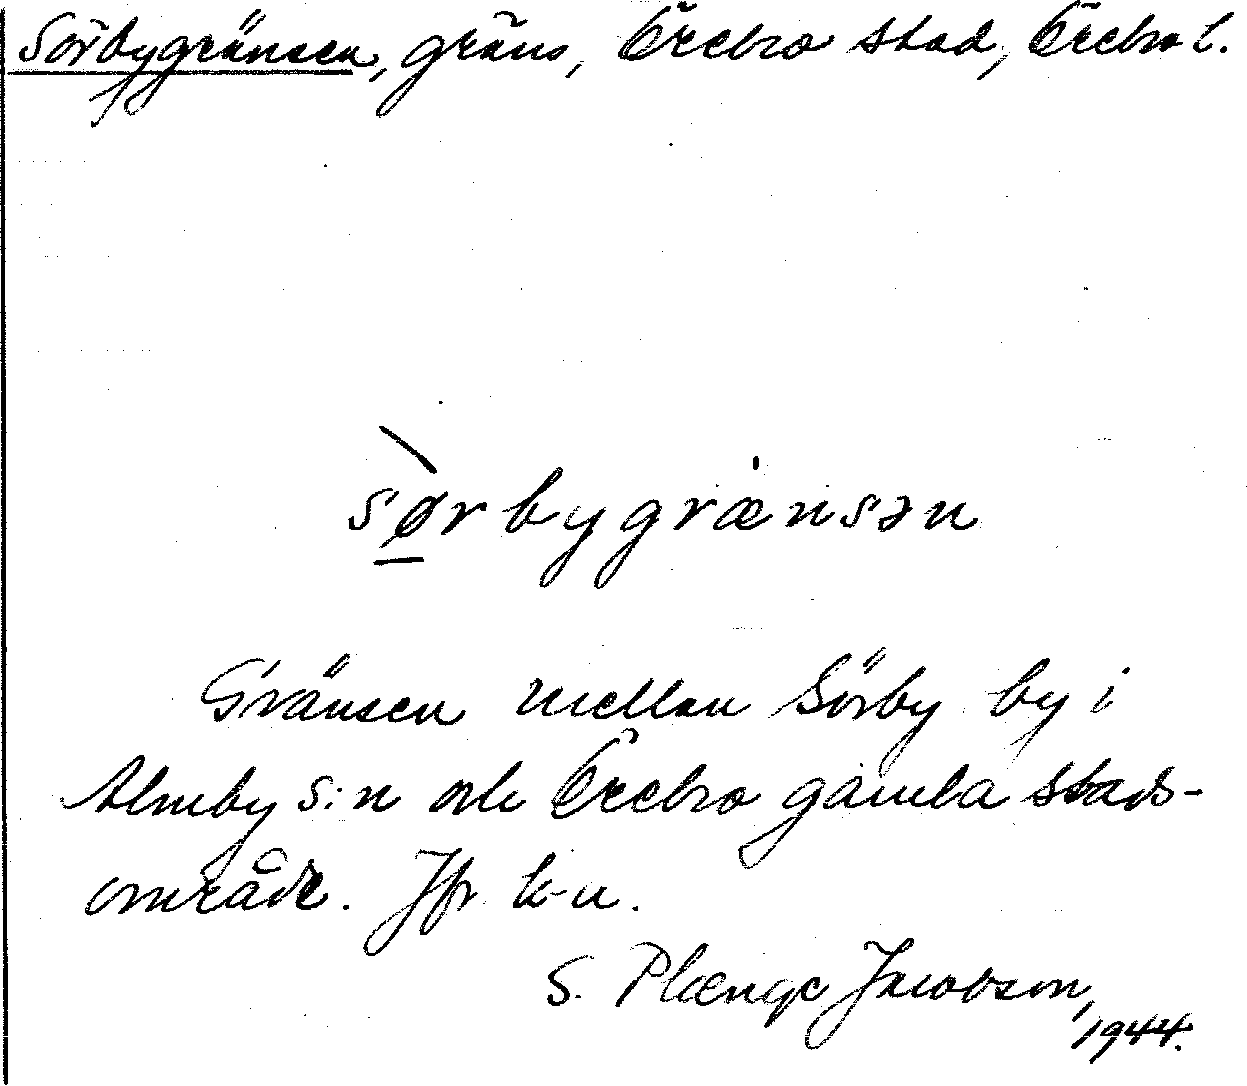 Sörbygränsen, gräns, Örebro stad, Örebro l.
sø̱̀rbygrænsən
Gränsen mellan Sörby by i
Almby s:n och Örebro gamla stads-
område. Jfr k-n.
S. Plænge Jacobson,
1944.